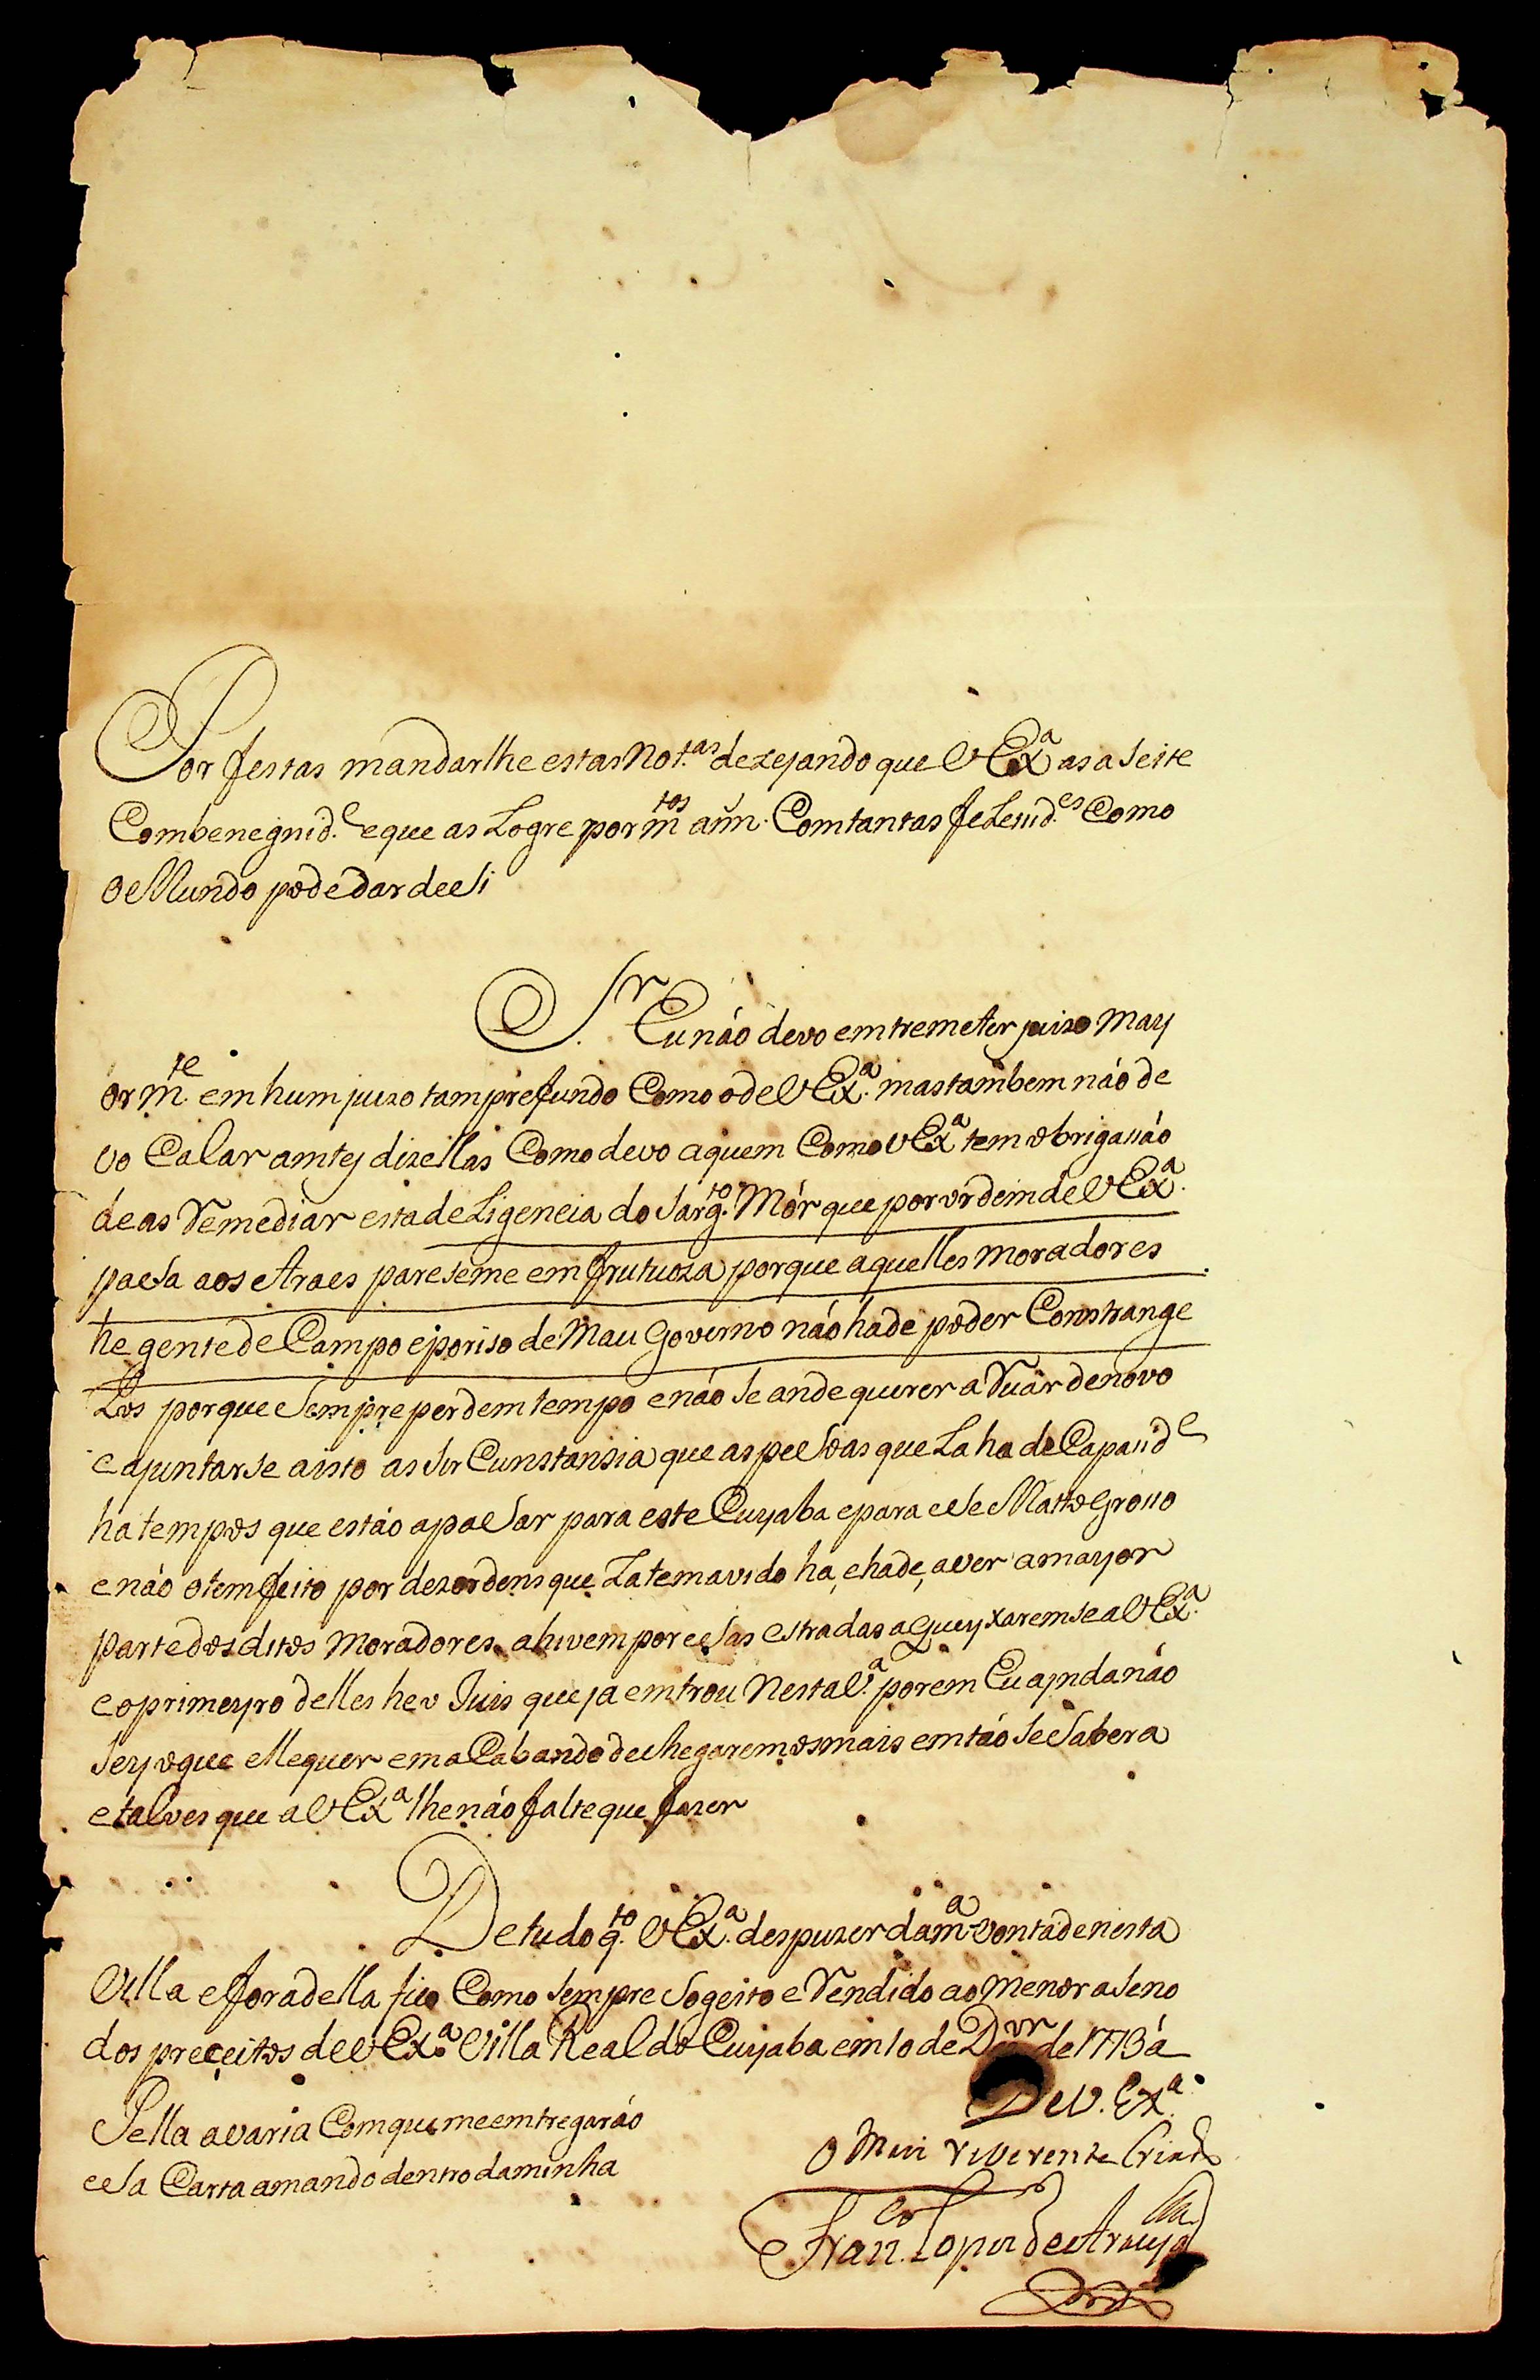 Por festas mandarlhe estas Not.as dezejando que VExa as aseite
Combenegnid.e eque as Logre por mtos ann. Comtantas feLesid.es Como
oMundo podedar desi
Sr Eu não devo emtremeter juizo may
or mte em hum juizo tam prefundo Como o de VExa. mas tambem não de
vo Calar amtes dizellas Como devo aquem Como VExa tem obrigassão
de as Remediar esta deLigencia do Sargto. Mór que por ordem de VExa.
passa aos Araes pareseme emfrutuoza porque aquelles moradores
he gente de Campo e poriso de Mau Governo não hade poder Constrange
Los porque Sempre perdem tempo e não se ande querer aRuar denovo
e ajuntarse a isto as sirCunstansia que as pessoas que La ha de Capasid.e
ha tempos que estão apassar para este Cuyaba e para esse Matto Grosso
e não o tem feito por dezordens que La tem avido ha, e hade, aver a mayor
parte dos ditos moradores ahi vem por essas estradas a Queyxaremse a VExa.
e o primeyro delles he o Juis que ja emtrou Nesta Va. porem Eu ajnda não
sey o que elle quer em aCabando de chegarem os mais emtão se Sabera
e talves que a VExa lhe não falte que fazer
De tudo qto. VExa. despuzer da ma vontade nesta
Villa e fora della fico Como Sempre Sogeito e Rendido ao menor aseno
dos preceitos de VExa. Villa Real do Cuyaba em 10 de de 1773 a
De V. Exa.
Pella avaria Com que me emtregarão
essa Carta a mando dentro da minha
O Mui reverente Criado
Franco. Lopes de Araujo